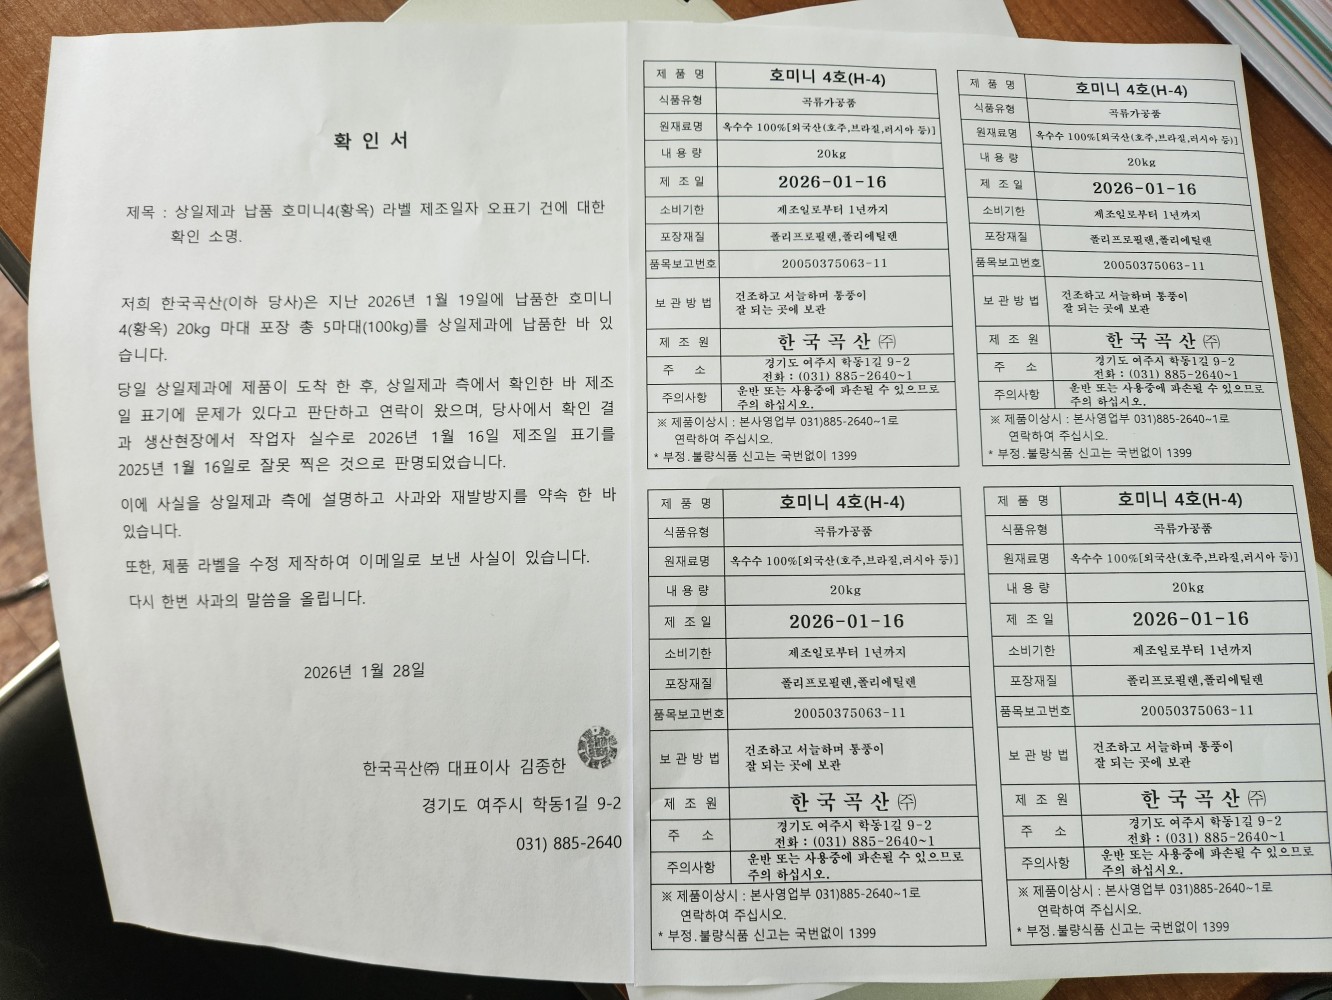 확 인 서
제목 : 상일제과 납품 호미니4(황옥) 라벨 제조일자 오표기 건에 대한
확인 소명.
저희 한국곡산(이하 당사)은 지난 2026년 1월 19일에 납품한 호미니
4(황옥) 20kg 마대 포장 총 5마대(100kg)를 상일제과에 납품한 바 있
습니다.
당일 상일제과에 제품이 도착 한 후, 상일제과 측에서 확인한 바 제조
일 표기에 문제가 있다고 판단하고 연락이 왔으며, 당사에서 확인 결
과 생산현장에서 작업자 실수로 2026년 1월 16일 제조일 표기를
2025년 1월 16일로 잘못 찍은 것으로 판명되었습니다.
이에 사실을 상일제과 측에 설명하고 사과와 재발방지를 약속 한 바
있습니다.
또한, 제품 라벨을 수정 제작하여 이메일로 보낸 사실이 있습니다.
다시 한번 사과의 말씀을 올립니다.
2026년 1월 28일
한국곡산㈜ 대표이사 김종한
경기도 여주시 학동1길 9-2
031) 885-2640
제 품 명 호미니 4호(H-4)
식품유형 곡류가공품
원재료명 옥수수 100%[외국산(호주,브라질,러시아 등)]
내 용 량 20kg
제 조 일 2026-01-16
소비기한 제조일로부터 1년까지
포장재질 폴리프로필렌,폴리에틸렌
품목보고번호 20050375063-11
보 관 방 법 건조하고 서늘하며 통풍이
잘 되는 곳에 보관
제 조 원 한 국 곡 산 ㈜
주 소 경기도 여주시 학동1길 9-2
전화 : (031) 885-2640~1
주의사항 운반 또는 사용중에 파손될 수 있으므로
주의 하십시오.
※ 제품이상시 : 본사영업부 031)885-2640~1로
연락하여 주십시오.
* 부정.불량식품 신고는 국번없이 1399
제 품 명 호미니 4호(H-4)
식품유형 곡류가공품
원재료명 옥수수 100%[외국산(호주,브라질,러시아 등)]
내 용 량 20kg
제 조 일 2026-01-16
소비기한 제조일로부터 1년까지
포장재질 폴리프로필렌,폴리에틸렌
품목보고번호 20050375063-11
보 관 방 법 건조하고 서늘하며 통풍이
잘 되는 곳에 보관
제 조 원 한 국 곡 산 ㈜
주 소 경기도 여주시 학동1길 9-2
전화 : (031) 885-2640~1
주의사항 운반 또는 사용중에 파손될 수 있으므로
주의 하십시오.
※ 제품이상시 : 본사영업부 031)885-2640~1로
연락하여 주십시오.
* 부정.불량식품 신고는 국번없이 1399
제 품 명 호미니 4호(H-4)
식품유형 곡류가공품
원재료명 옥수수 100%[외국산(호주,브라질,러시아 등)]
내 용 량 20kg
제 조 일 2026-01-16
소비기한 제조일로부터 1년까지
포장재질 폴리프로필렌,폴리에틸렌
품목보고번호 20050375063-11
보 관 방 법 건조하고 서늘하며 통풍이
잘 되는 곳에 보관
제 조 원 한 국 곡 산 ㈜
주 소 경기도 여주시 학동1길 9-2
전화 : (031) 885-2640~1
주의사항 운반 또는 사용중에 파손될 수 있으므로
주의 하십시오.
※ 제품이상시 : 본사영업부 031)885-2640~1로
연락하여 주십시오.
* 부정.불량식품 신고는 국번없이 1399
제 품 명 호미니 4호(H-4)
식품유형 곡류가공품
원재료명 옥수수 100%[외국산(호주,브라질,러시아 등)]
내 용 량 20kg
제 조 일 2026-01-16
소비기한 제조일로부터 1년까지
포장재질 폴리프로필렌,폴리에틸렌
품목보고번호 20050375063-11
보 관 방 법 건조하고 서늘하며 통풍이
잘 되는 곳에 보관
제 조 원 한 국 곡 산 ㈜
주 소 경기도 여주시 학동1길 9-2
전화 : (031) 885-2640~1
주의사항 운반 또는 사용중에 파손될 수 있으므로
주의 하십시오.
※ 제품이상시 : 본사영업부 031)885-2640~1로
연락하여 주십시오.
* 부정.불량식품 신고는 국번없이 1399